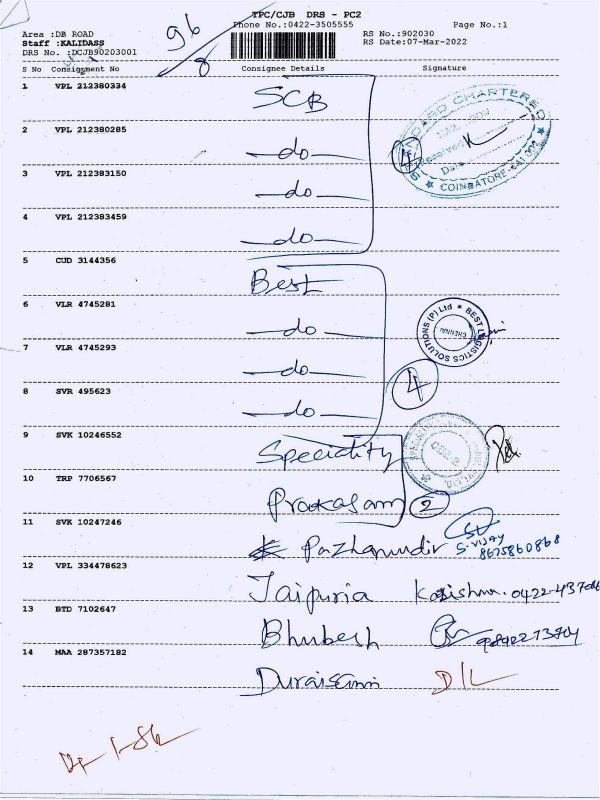 96
8
TPC/CJB DRS - PC2
Phone No.:0422-3505555
Page No.:1
Area :DB ROAD
Staff :KALIDASS
DRS No. :DCJB90203001
RS No.:902030
RS Date:07-Mar-2022
S No Consignment No Consignee Details Signature
1 VPL 212380334 SCB
2 VPL 212380285 —do—
3 VPL 212383150 —do—
4 VPL 212383459 —do—
4
STANDARD CHARTERED
Received
Date
COIMBATORE
5 CUD 3144356 Best
6 VLR 4745281 —do—
7 VLR 4745293 —do—
8 SVR 495623 —do—
4
BEST LOGISTICS SOLUTIONS (P) Ltd
CHENNAI
9 SVK 10246552 Speciality
10 TRP 7706567 Prakasam 2
11 SVK 10247246 Pazhamudir S.Vijay
8675860868
12 VPL 334478623 Jaipuria Karishma. 0422-4370
13 BTD 7102647 Bhubesh 9892273704
14 MAA 287357182 Duraisami D/L